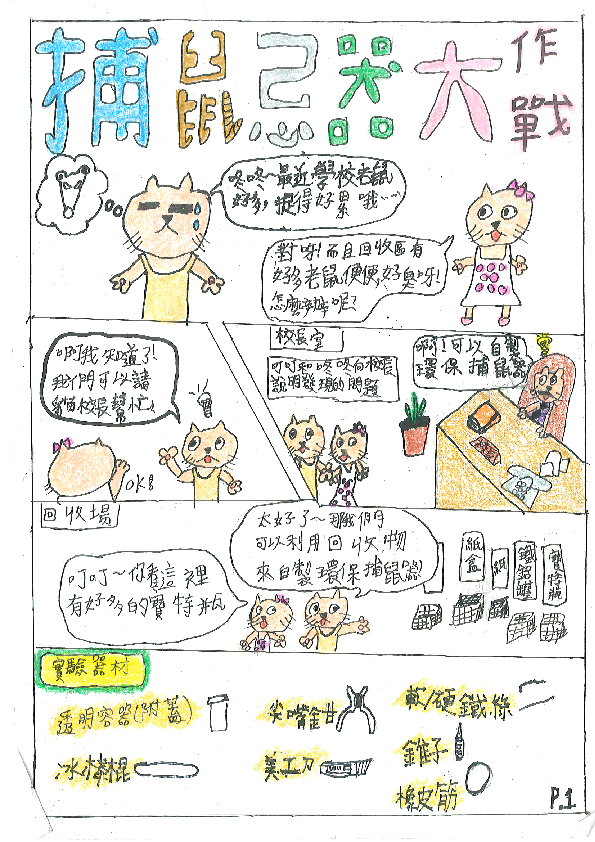 捕鼠忍器大作戰
咚咚~最近學校老鼠
好多,捉得好累哦……
對呀!而且回收區有
好多老鼠便便,好臭呀!
怎麼辦呢?
啊我知道了!
我們可以請
貓校長幫忙。
OK!
校長室
叮叮和咚咚向校長
說明發現的問題
啊!可以自製
環保捕鼠器
回收場
叮叮~你看這裡
有好多的寶特瓶
太好了~那我們
可以利用回收物
來自製環保捕鼠器!
紙盒
紙
鐵鋁罐
寶特瓶
實驗器材
透明容器(附蓋)
尖嘴鉗
軟/硬鐵絲
冰棒棍
美工刀
錐子
橡皮筋
P.1